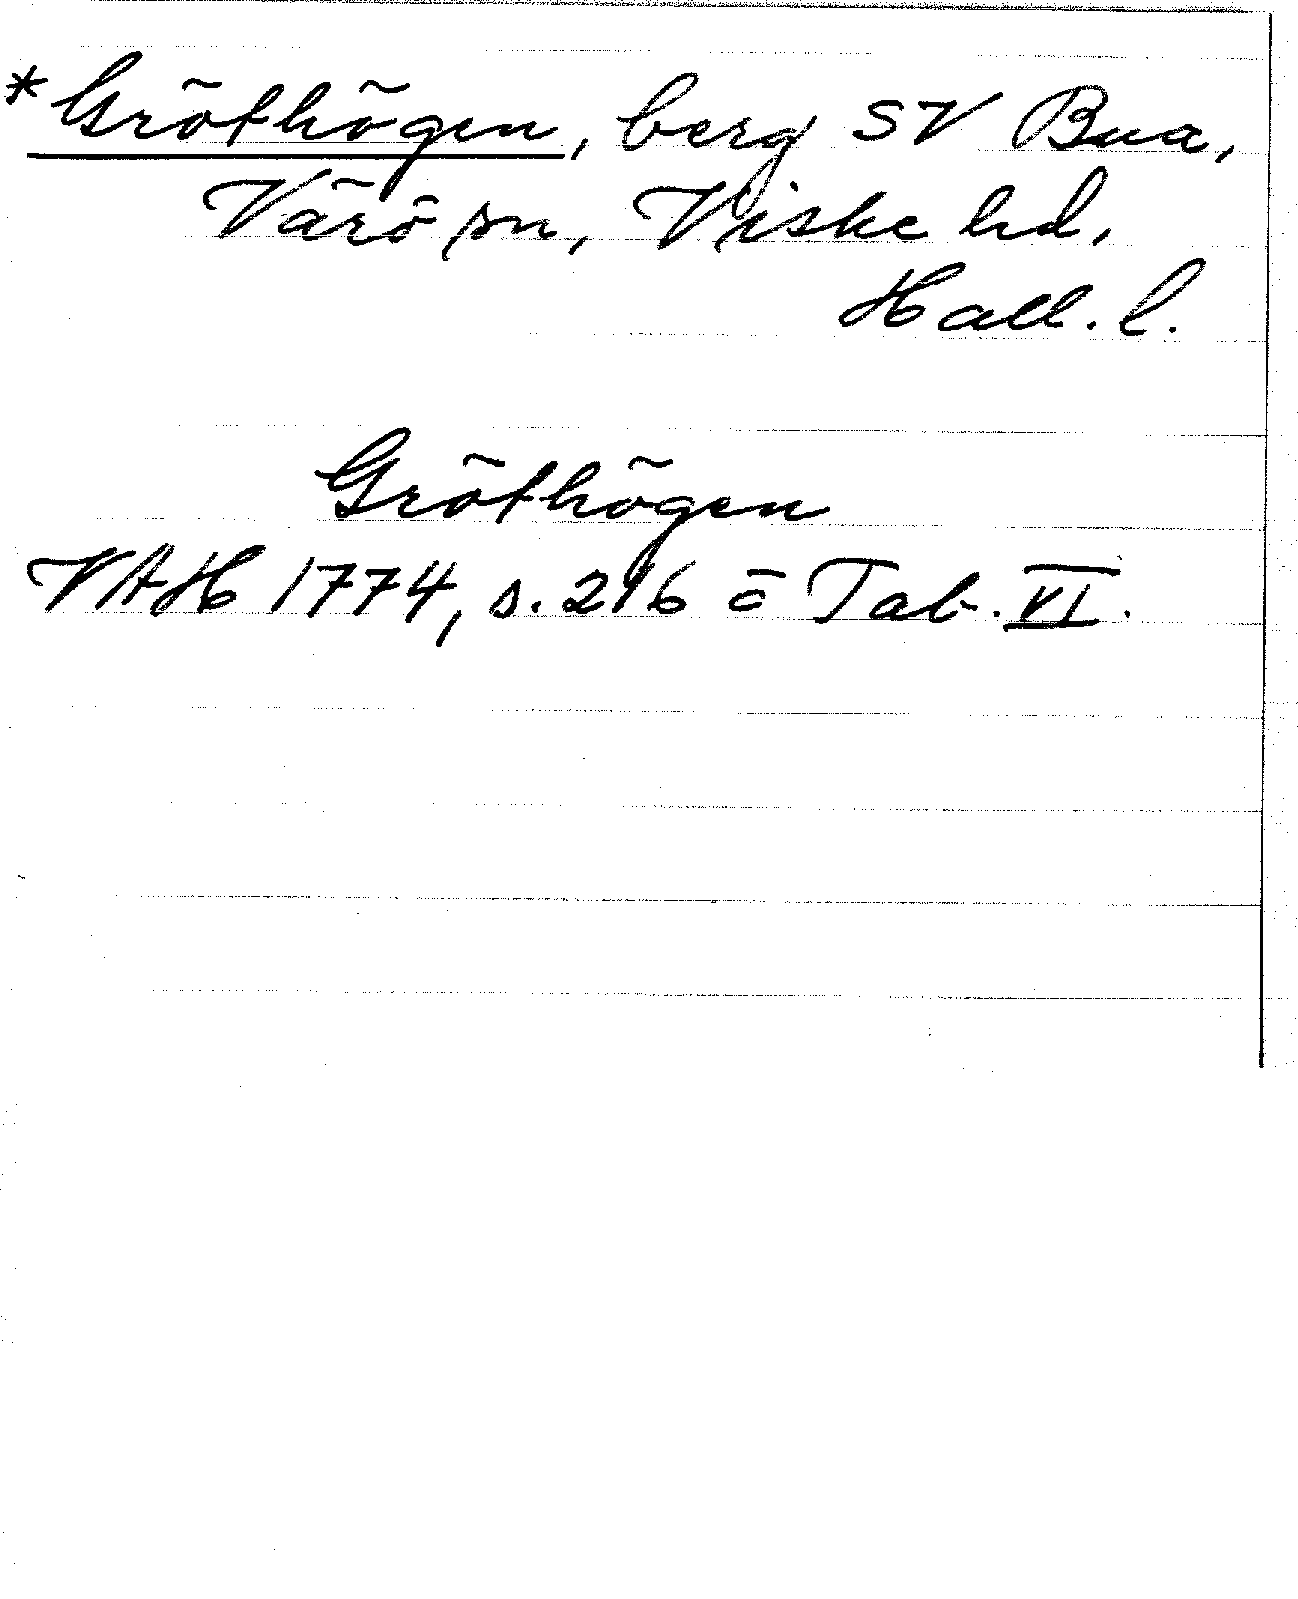 *Gröthögen, berg SV Bua,
Värö sn, Viske hd,
Hall. l.
Gröthögen
VAH 1774, s. 216 o Tab. VI.